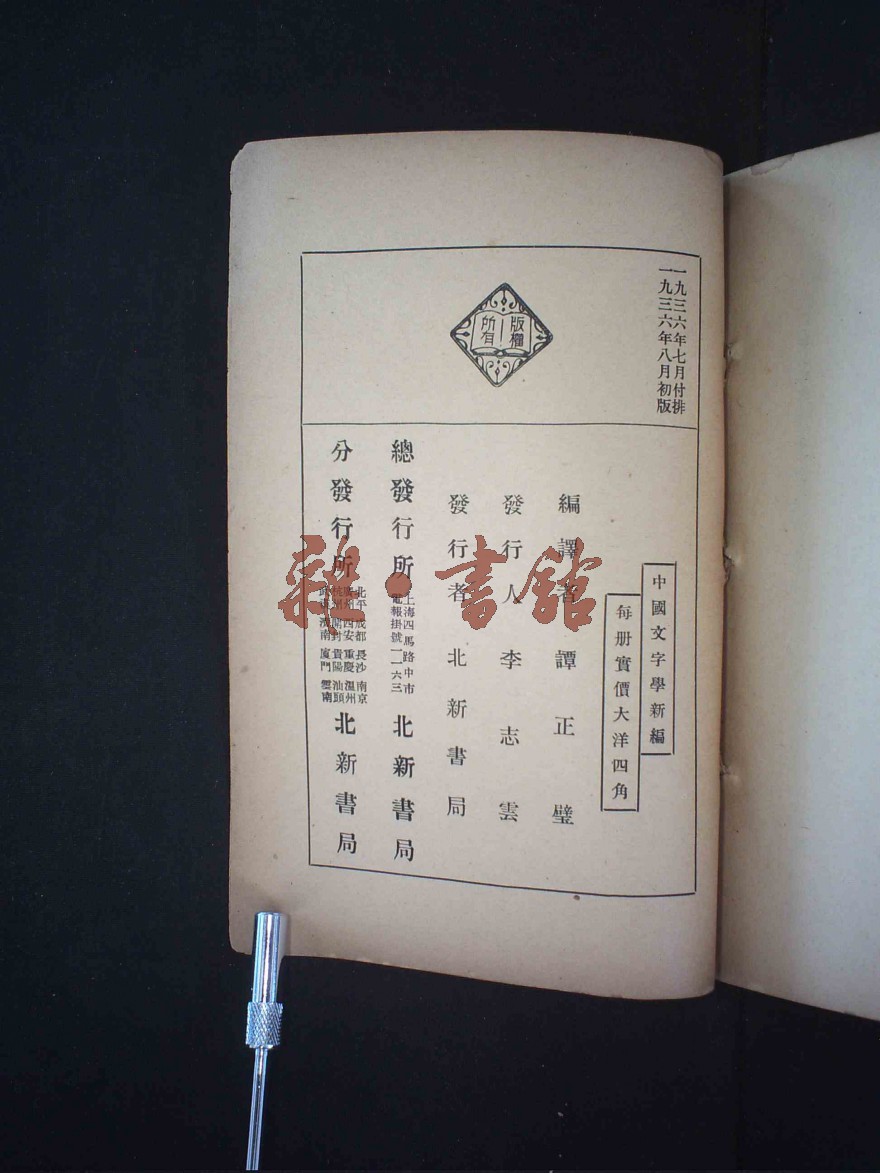 一九三六年七月付排
一九三六年八月初版
版權
所有
中國文字學新編
每册實價大洋四角
編譯者 譚正璧
發行人 李志雲
發行者 北新書局
總發行所 上海四馬路中市 電報掛號一一六三 北新書局
分發行所 北平 成都 長沙 南京 廣州 西安 重慶 溫州 杭州 開封 貴陽 汕頭 濟南 廈門 雲南 北新書局
雜·書館